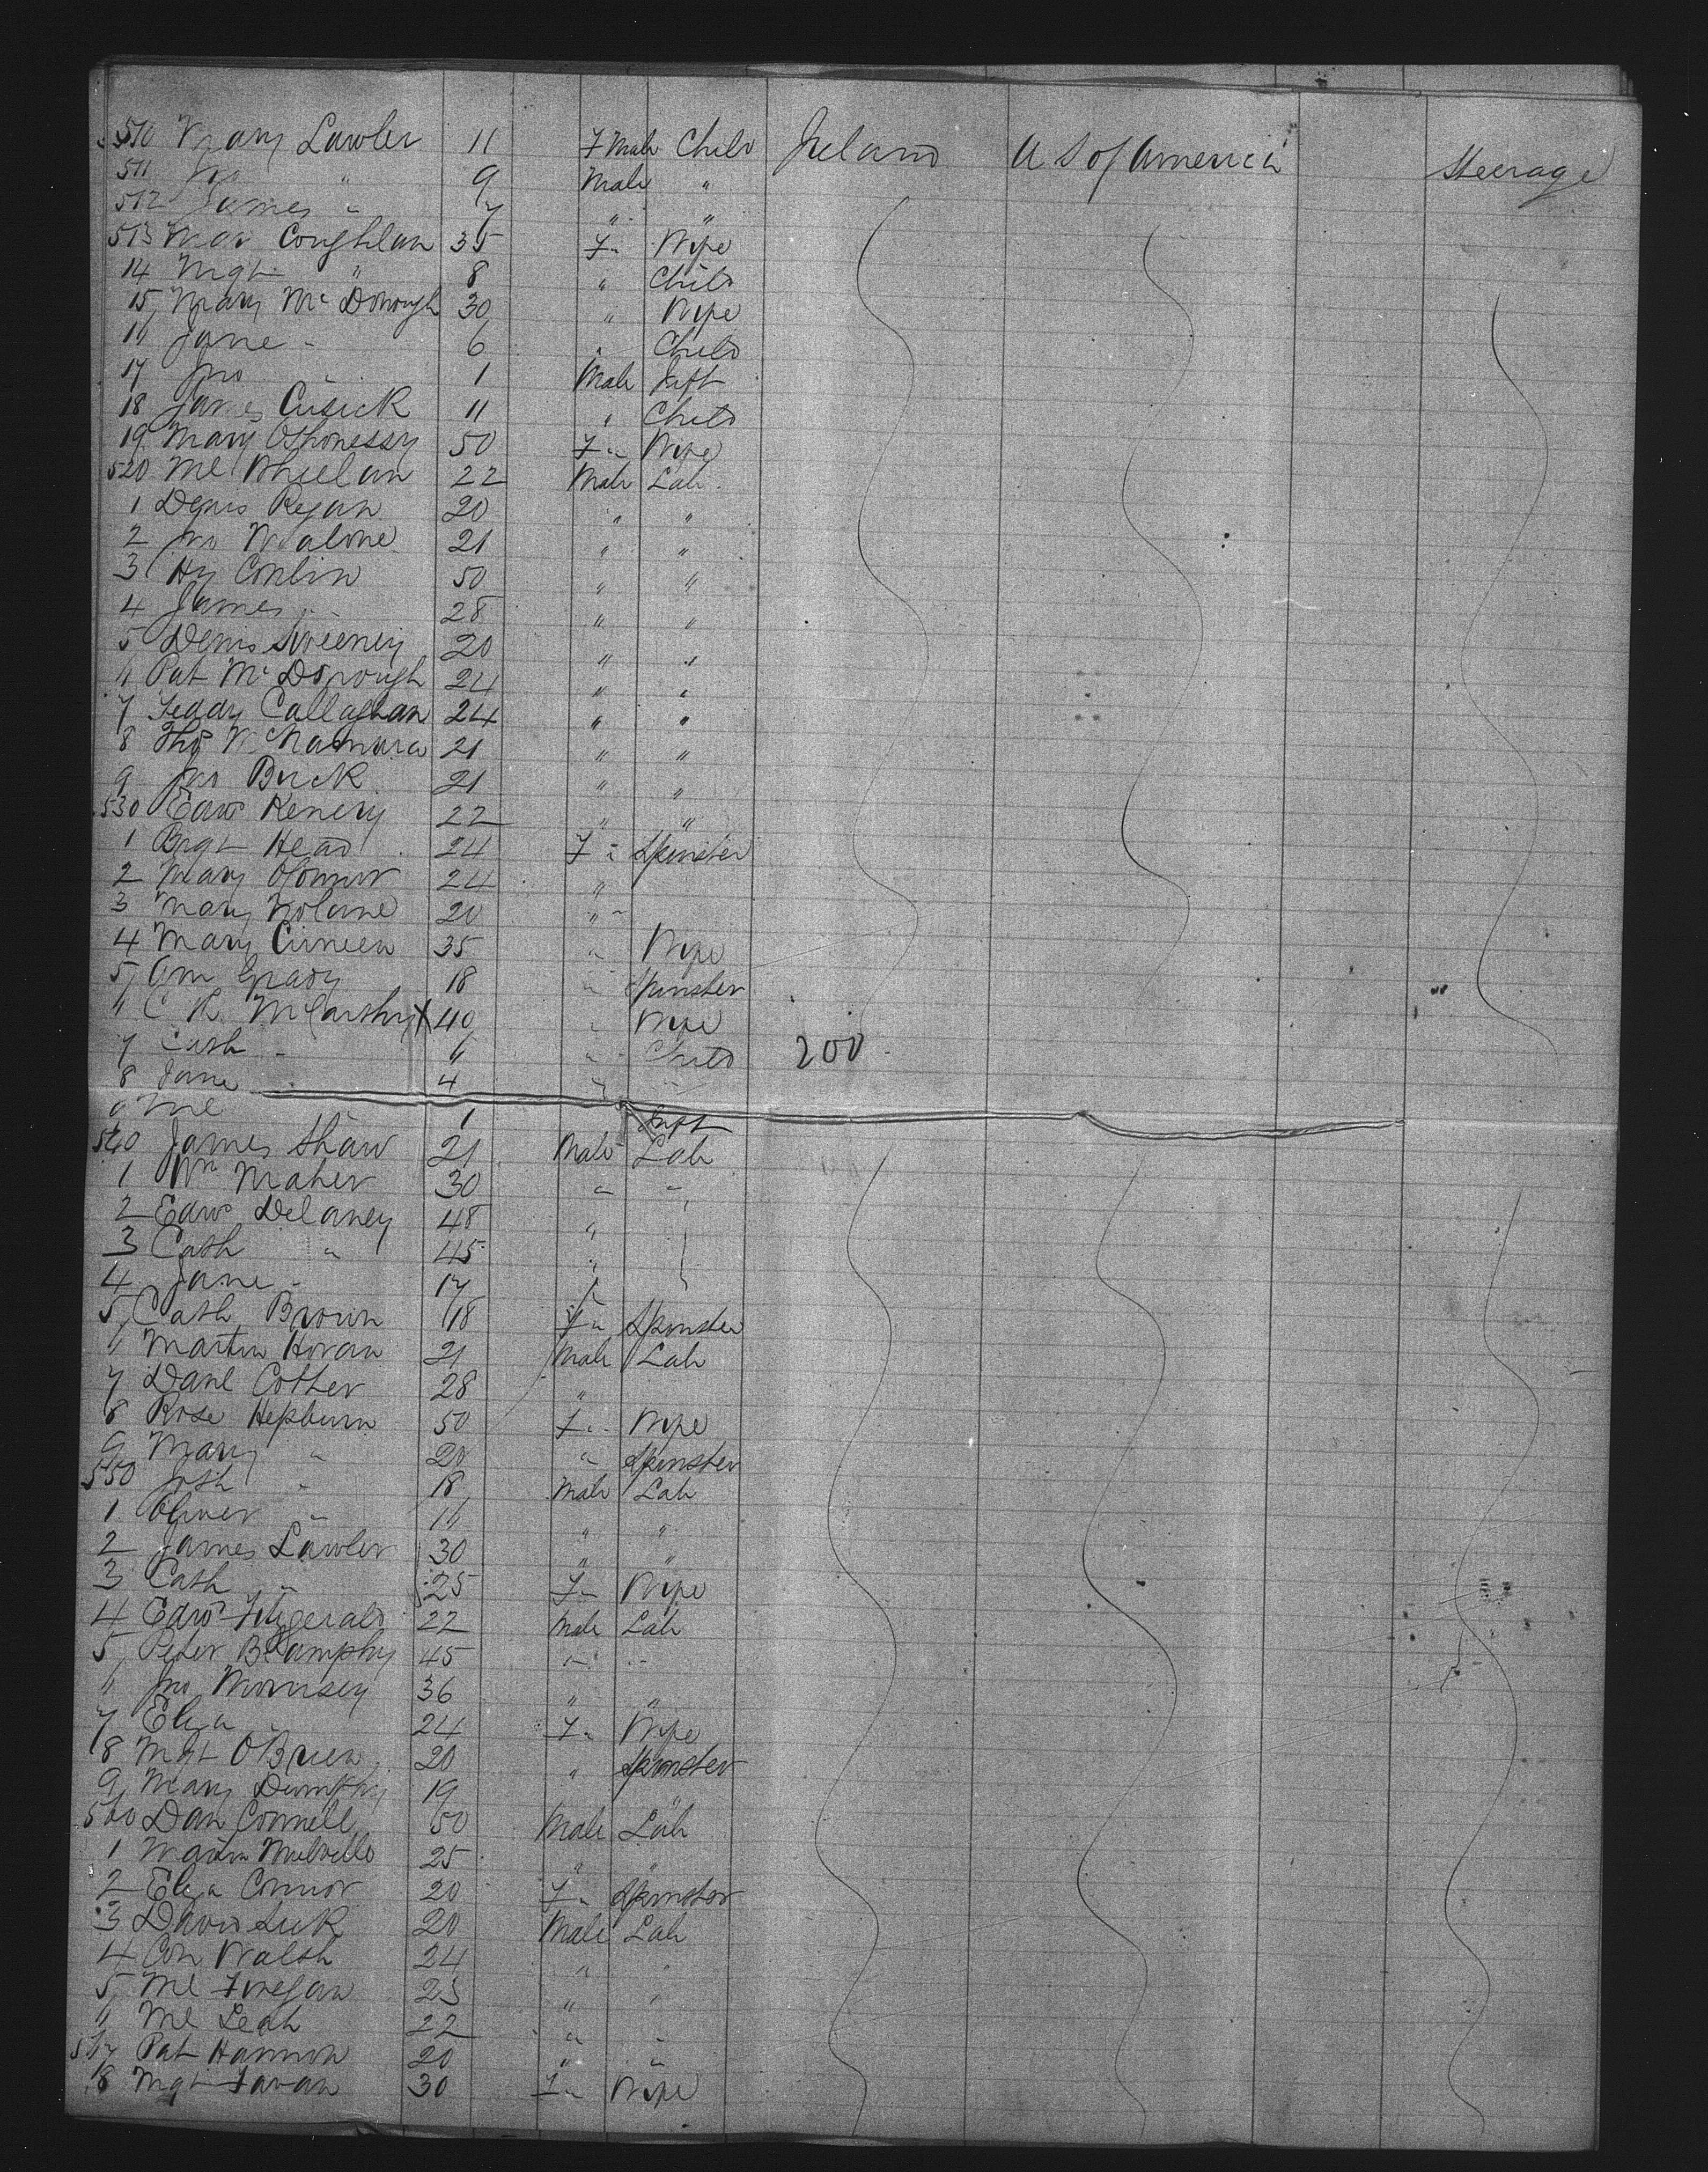 510 Mary Lawler 11 F Male Child Ireland U S of America Steerage
511 Jno " 9 Male "
512 James " 7 " "
513 Mar Coughlan 35 F " Wife
14 Mgt " 8 " Child
15 Mary Mc Donough 30 " Wife
16 Jane " 6 " Child
17 Jno " 1 Male Inft
18 James Cusick 11 " Child
19 Mary OShonessy 50 F " Wife
520 Ml Whelan 22 Male Lab
1 Denis Regan 20 " "
2 Jno Malone 21 " "
3 Hy Conlin 50 " "
4 James " 28 " "
5 Denis Sweeney 20 " "
6 Pat Mc Donough 24 " "
7 Teddy Callaghan 24 " "
8 Thos McNamara 21 " "
9 Jno Buck 21 " "
530 Edwd Kenery 22 " "
1 Brgt Head 24 F " Spinster
2 Mary OConnor 24 "
3 Mary Nolane 20 "
4 Mary Cuneen 35 " Wife
5 Ann Grady 18 " Spinster
6 C R McCarthy X 40 " Wife
7 Cath " 6 " Child 200
8 Jane 4 " "
9 Ml 1 Inft
540 James Shaw 21 Male Lab
1 Wm Maher 30 " "
2 Edwd Delaney 48 "
3 Cath " 45 "
4 Jane " 17
5 Cath Brown 18 F " Spinster
6 Martin Horan 21 Male Lab
7 Danl Cother 28 "
8 Rose Hepburn 50 F " Wife
9 Mary " 20 " Spinster
550 Josh " 18 Male Lab
1 Oliver " 16 " "
2 James Lawler 30 " "
3 Cath " 25 F " Wife
4 Edwd Fitzgerald 22 Male Lab
5 Peter 45 " "
6 Jno Morrisey 36 " "
7 Eliza " 24 F " Wife
8 Mgt OBrien 20 " Spinster
9 Mary Dumphy 19 "
560 Dan Connell 50 Male Lab
1 Martin Melville 25 " "
2 Eliza Connor 20 F " Spinster
3 David Luck 20 Male Lab
4 Con Walsh 24 " "
5 Ml Finegan 23 " "
6 Ml Leah 22 " "
567 Pat Hannon 20 " "
8 Mgt Favan 30 F " Wife